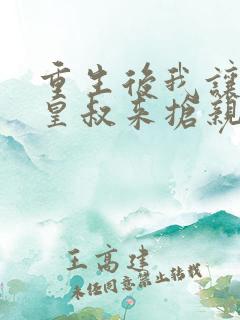 重生後我讓
皇叔来搶親
王高建
未经同意禁止转载